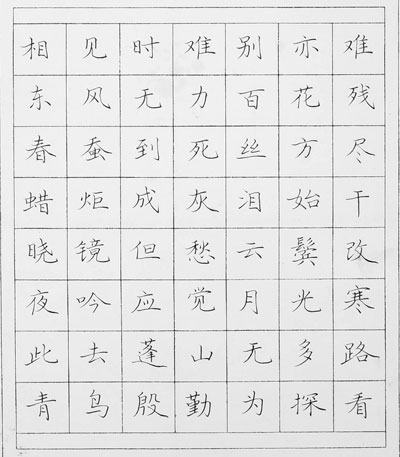 相见时难别亦难
东风无力百花残
春蚕到死丝方尽
蜡炬成灰泪始干
晓镜但愁云鬓改
夜吟应觉月光寒
此去蓬山无多路
青鸟殷勤为探看